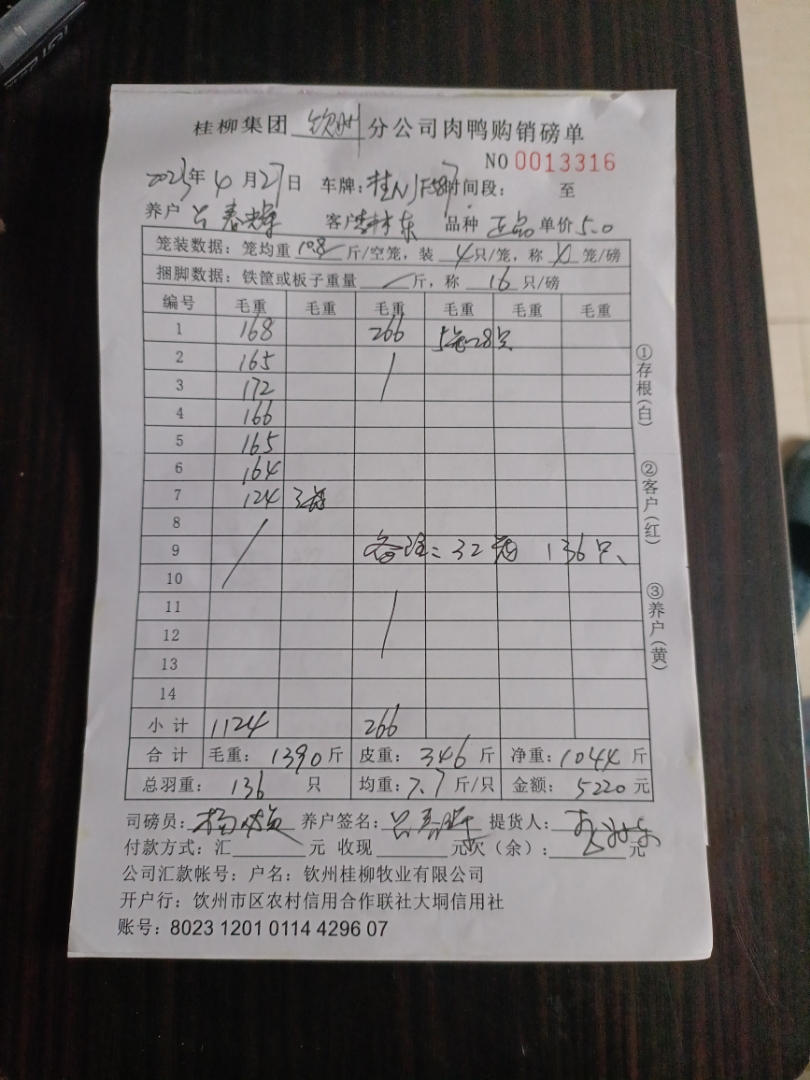 桂柳集团 钦州 分公司肉鸭购销磅单
NO 0013316
2023年 4 月 27 日 车牌: 桂N 时间段: 至
养户 吕春辉 客户 林东 品种 正品 单价 5.0
笼装数据: 笼均重 10.8 斤/空笼, 装 4 只/笼, 称 4 笼/磅
捆脚数据: 铁筐或板子重量 / 斤, 称 16 只/磅
编号 毛重 毛重 毛重 毛重 毛重 毛重
1 168 266 5笼28只
2 165
3 172
4 166
5 165
6 164
7 124 3笼
8
9 备注: 32笼 136只
10
11
12
13
14
小计 1124 266
合计 毛重: 1390 斤 皮重: 346 斤 净重: 1044 斤
总羽重: 136 只 均重: 7.7 斤/只 金额: 5220 元
司磅员: 杨 养户签名: 吕春辉 提货人:
付款方式: 汇 元 收现 元欠(余): 元
公司汇款帐号: 户名: 钦州桂柳牧业有限公司
开户行: 钦州市区农村信用合作联社大垌信用社
账号: 8023 1201 0114 4296 07
①存根(白)
②客户(红)
③养户(黄)